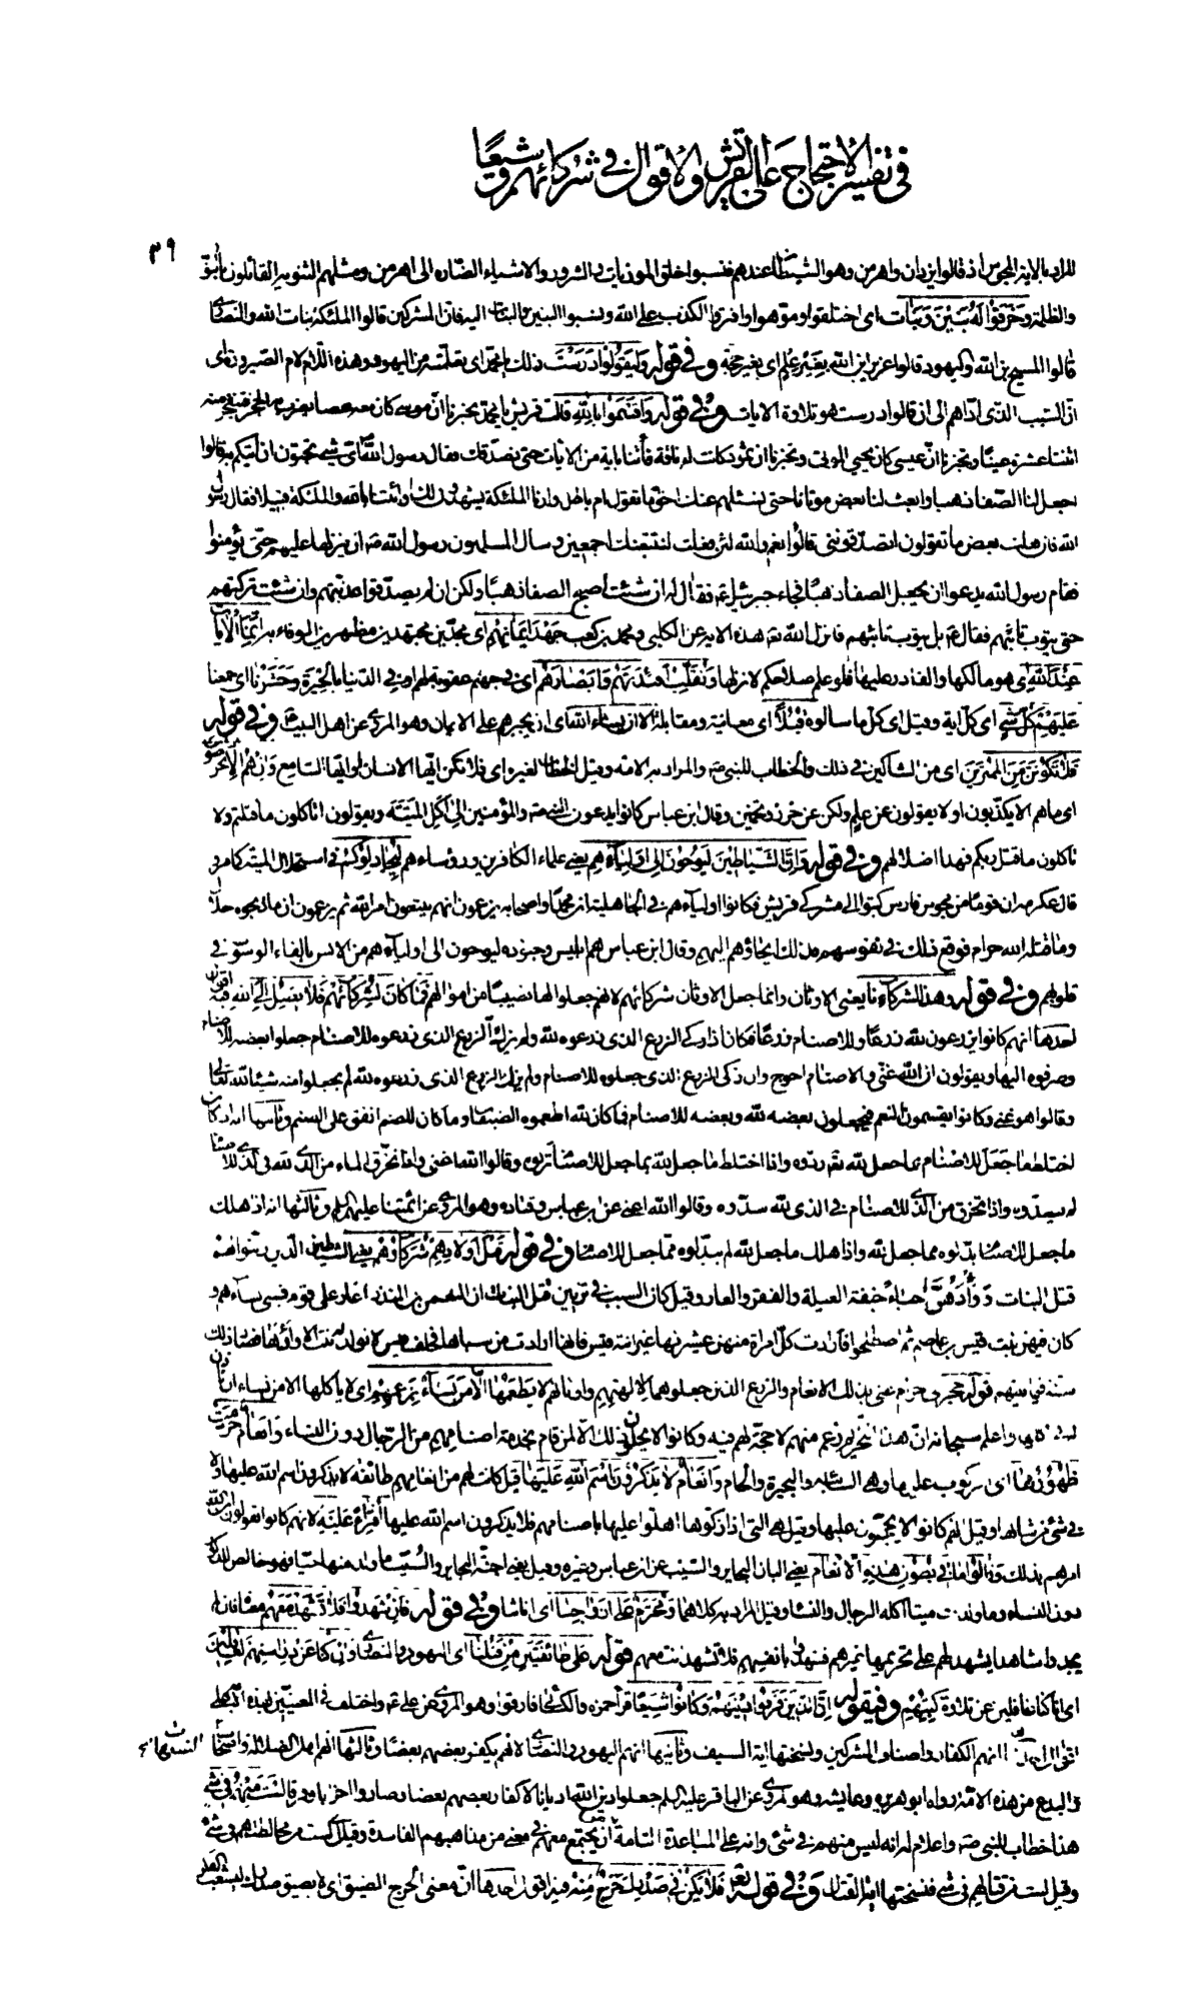 في تفسير الاحتجاج على القريش والاقوال في شركائهم وشيعًا
٣٩
المراد بالاية المجوس اذ قالوا يزدان واهرمن وهو الشيطان عندهم فنسبوا خلق الموذيات والشرور والاشياء الضارة الى اهرمن ومثلهم الثنوية القائلون بالنور
والظلمة وَخَرَقُوا لَهُ بَنِينَ وَبَنَاتٍ اى اختلقوا وموهوا وافتروا الكذب على الله ونسبوا البنين والبنات اليه فان المشركين قالوا الملئكة بنات الله والنصارى
قالوا المسيح بن الله واليهود قالوا عزير ابن الله بِغَيْرِ عِلْمٍ اى بغير حجة وفي قوله وَلِيَقُولُوا دَرَسْتَ ذلك يا محمد اى تعلمته من اليهود وهذه اللام لام الصيرورة اى
ان السبب الذى اداهم الى ان قالوا درست هو تلاوة الايات وفي قوله وَاَقْسَمُوا بِاللهِ قالت قريش يا محمد تخبرنا ان موسى كان معه عصا يضرب بها الحجر فينفجر منه
اثنتا عشرة عينًا وتخبرنا ان عيسى كان يحيي الموتى وتخبرنا ان ثمود كانت له ناقة فأتنا بآية من الايات حتى نصدقك فقال رسول الله اى شيء تحبون ان اتيكم به قالوا
اجعل لنا الصفا ذهبا وابعث لنا بعض موتانا حتى نسئلهم عنك احق ما تقول ام باطل وارنا الملئكة يشهدون لك او ائتنا بالله والملئكة قبيلا فقال رسول
الله فان فعلت بعض ما تقولون اتصدقوننى قالوا نعم والله لئن فعلت لنتبعنك اجمعين وسال المسلمون رسول الله ص ان ينزلها عليهم حتى يؤمنوا
فقام رسول الله يدعو ان يجعل الصفا ذهبًا فجاء جبرئيل ع فقال له ان شئت اصبح الصفا ذهبًا ولكن ان لم يصدقوا عذبتهم وان شئت تركتهم
حتى يتوب تائبهم فقال ع بل يتوب تائبهم فانزل الله تع هذه الاية عن الكلبى ومحمد بن كعب جَهْدَ اَيْمَانِهِمْ اى مجدين مجتهدين مظهرين الوفاء به اِنَّمَا الْآيَاتُ
عِنْدَ اللهِ اى هو مالكها والقادر عليها فلو علم صلاحكم لانزلها وَنُقَلِّبُ اَفْئِدَتَهُمْ وَاَبْصَارَهُمْ اى في جهنم عقوبة لهم او في الدنيا بالحيرة وَحَشَرْنَا اى جمعنا
عَلَيْهِمْ كُلَّ شَيْءٍ اى كل اية وقيل اى كل ما سالوه قُبُلًا اى معاينة ومقابلة اِلَّا اَنْ يَشَاءَ اللهُ اى ان يجبرهم على الايمان وهو المروى عن اهل البيت ع وفي قوله
فَلَا تَكُونَنَّ مِنَ الْمُمْتَرِينَ اى من الشاكين في ذلك والخطاب للنبى ص والمراد به الامة وقيل الخطاب لغيره اى فلا تكن ايها الانسان او ايها السامع وَاِنْ هُمْ اِلَّا يَخْرُصُونَ
اى ما هم الا يكذبون او لا يقولون عن علم ولكن عن خرز وتخمين وقال ابن عباس كانوا يدعون النبى ص والمؤمنين الى اكل الميتة ويقولون اتاكلون ما قتلتم ولا
تاكلون ما قتل ربكم فهذا اضلالهم وفي قوله وَاِنَّ الشَّيَاطِينَ لَيُوحُونَ اِلَى اَوْلِيَائِهِمْ يعنى علماء الكافرين ورؤساءهم لِيُجَادِلُوكُمْ في استحلال الميتة كما مر
قال عكرمة ان قومًا من مجوس فارس كتبوا الى مشركى قريش وكانوا اولياءهم في الجاهلية ان محمدًا واصحابه يزعمون انهم يتبعون امر الله ثم يزعمون ان ما ذبحوه حلال
وما قتله الله حرام فوقع ذلك في نفوسهم فذلك ايحاؤهم اليهم وقال ابن عباس هم ابليس وجنوده ليوحون الى اولياءهم من الانس بالقاء الوسوسة في
قلوبهم وفي قوله وَهَذَا لِشُرَكَائِنَا يعنى الاوثان وانما جعل الاوثان شركائهم لانهم جعلوا لها نصيبًا من اموالهم فَمَا كَانَ لِشُرَكَائِهِمْ فَلَا يَصِلُ اِلَى اللهِ فيه اقوال
احدها انهم كانوا يزرعون لله زرعًا وللاصنام زرعًا فكان اذا زكى الزرع الذى زرعوه لله ولم يزك الزرع الذى زرعوه للاصنام جعلوا بعضه للاصنام
وصرفوه اليها ويقولون ان الله غنى والاصنام احوج وان زكى الزرع الذى جعلوه للاصنام ولم يزك الزرع الذى زرعوه لله لم يجعلوا منه شيئًا لله تعالى
وقالوا هو غنى وكانوا يقسمون النعم فيجعلون بعضه لله وبعضه للاصنام فما كان لله اطعموه الضيفان وما كان للصنم انفق على الصنم وثانيها انه اذا كان
اختلط ما جعل للاصنام بما جعل لله تع ردوه واذا اختلط ما جعل لله بما جعل للاصنام تركوه وقالوا الله اغنى واذا تخرق الماء من الذى لله في الذى للاصنام
لم يسدوه واذا تخرق من الذى للاصنام في الذى لله سدوه وقالوا الله اغنى عن ابن عباس وقتاده وهو المروى عن ائمتنا عليهم السلم وثالثها انه اذا هلك
ما جعل للاصنام بدلوه مما جعل لله واذا هلك ما جعل لله لم يبدلوه مما جعل للاصنام وفي قوله قَتْلَ اَوْلَادِهِمْ شُرَكَاؤُهُمْ يعنى الشياطين الذين زينوا لهم
قتل البنات ووأدهن احياءً خيفة العيلة والفقر والعار وقيل كان السبب في تزيين قتل البنات ان النعمن بن المنذر اغار على قوم فسبى نساءهم و
كان فيهن بنت قيس بن عاصم ثم اصطلحوا فارادت كل امراة منهن عشيرتها غير ابنة قيس فانها ارادت من سباها فحلف قيس لا تولد له بنت الا وأدها فصار ذلك
سنة فيما بينهم قوله حِجْرٌ اى حرام عنى بذلك الانعام والزرع الذين جعلوهما لالهتهم واوثانهم لَا يَطْعَمُهَا اِلَّا مَنْ نَشَاءُ بِزَعْمِهِمْ اى لا ياكلها الا من نشاء ان نأذن
له واعلم سبحانه ان هذا التحريم زعم منهم لا حجة لهم فيه وكانوا لا يحلون ذلك الا لمن قام بخدمة اصنامهم من الرجال دون النساء وَاَنْعَامٌ حُرِّمَتْ
ظُهُورُهَا اى ركوب عليها وهى السائبة والبحيرة والحام وَاَنْعَامٌ لَا يَذْكُرُونَ اسْمَ اللهِ عَلَيْهَا قيل كانت لهم من انعامهم طائفة لا يذكرون اسم الله عليها ولا
في شىء من شانها وقيل انهم كانوا لا يحجون عليها وقيل هى التى اذا ذكوها اهلوا عليها باصنامهم فلا يذكرون اسم الله عليها افْتِرَاءً عَلَيْهِ لانهم كانوا يقولون ان الله
امرهم بذلك وَقَالُوا مَا فِي بُطُونِ هَذِهِ الْاَنْعَامِ يعنى البان البحاير والسيب عن ابن عباس وغيره وقيل يعنى اجنة البحاير والسيب ما ولد منها حيًا فهو خالص للذكور
دون النساء وما ولدت ميتًا اكله الرجال والنساء وقيل المراد به كلاهما وَمُحَرَّمٌ عَلَى اَزْوَاجِنَا اى اناثنا وفي قوله فَاِنْ شَهِدُوا فَلَا تَشْهَدْ مَعَهُمْ معناه فان لم
يجدوا شاهدا يشهد لهم على تحريمها غيرهم فشهدوا بانفسهم فلا تشهد انت معهم قوله عَلَى طَائِفَتَيْنِ مِنْ قَبْلِنَا اى اليهود والنصارى وَاِنْ كُنَّا عَنْ دِرَاسَتِهِمْ لَغَافِلِينَ
اى انا كنا غافلين عن تلاوة كتبهم وفي قوله اِنَّ الَّذِينَ فَرَّقُوا دِينَهُمْ وَكَانُوا شِيَعًا قرأ حمزه والكسائى فارقوا وهو المروى عن على ع واختلف في المعنيين بهذه الاية على
اقوال انهم الكفار واصناف المشركين ونسختها اية السيف وثانيها انهم اليهود والنصارى لانهم يكفر بعضهم بعضًا وثالثها انهم اهل الضلالة واصحاب
الشبهات
والبدع من هذه الامة رواه ابو هريره وعايشه وهو المروى عن الباقر عليه السلم جعلوا دين الله اديانا لاكفار بعضهم بعضا وصاروا احزابا وفرقا لَسْتَ مِنْهُمْ فِي شَيْءٍ
هذا خطاب للنبى ص واعلام له انه ليس منهم في شىء وانه على المباعدة التامة من ان يجتمع معهم في معنى من مذاهبهم الفاسدة وقيل لست من مخالطتهم في شىء
وقيل لست من قتالهم في شىء فنسختها اية القتال وفي قوله تعالى فَلَا يَكُنْ فِي صَدْرِكَ حَرَجٌ مِنْهُ فيه اقوال احدها ان معنى الحرج الضيق اى لا يضيق صدرك